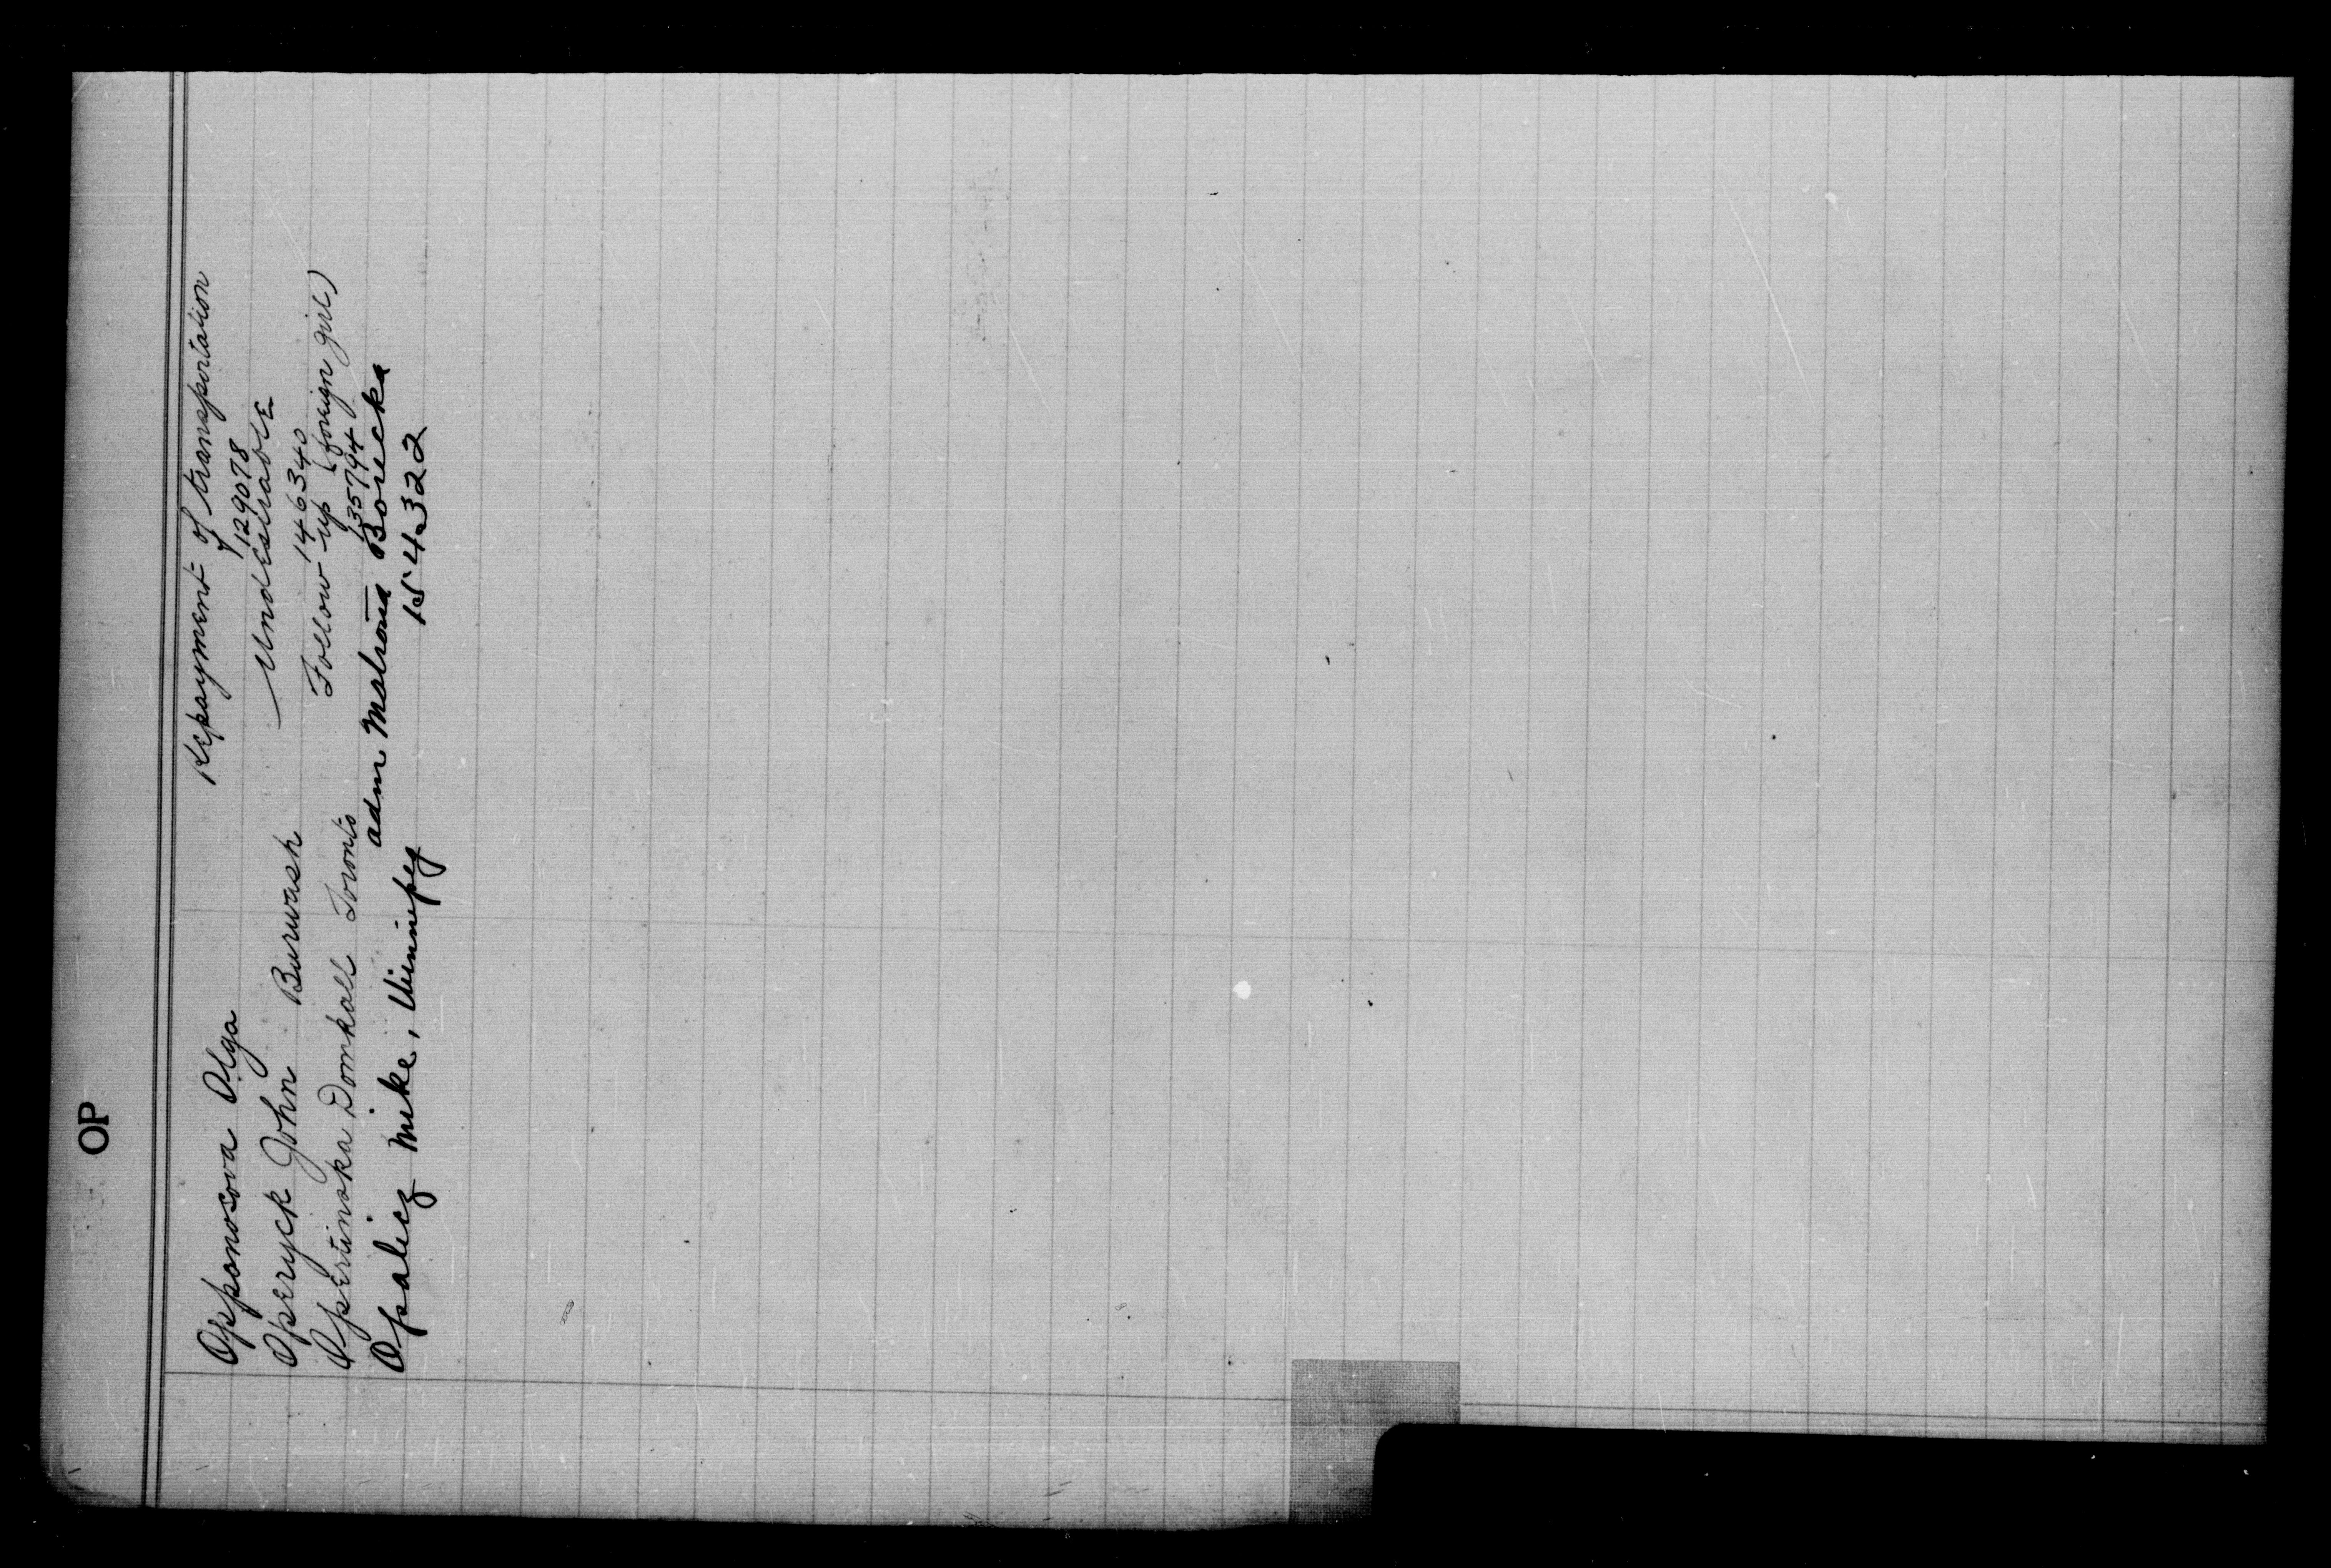 OP
Opponosova Olga Repayment of transportation
129078
Operyck John Burwash Undesirable
146340
Opertinska Domkall Toronto Follow-up (foreign girl)
135794
Opalicz Mike, Winnipeg adm Malrona Borecka
154322